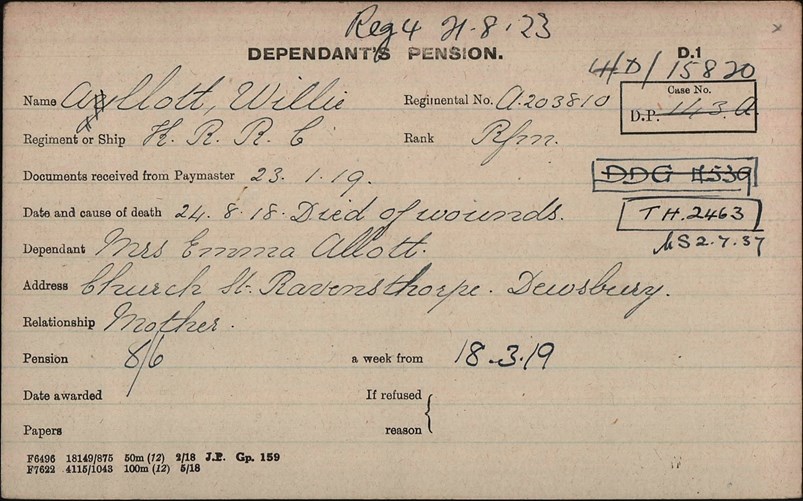 Reg 4 21.8.23
DEPENDANT'S PENSION. D.1
WD/15820
Name Ayllott, Willie Regimental No. A.203810 Case No.
D.P. 143.A
Regiment or Ship K. R. R. C Rank Rfm.
Documents received from Paymaster 23. 1. 19. DDG 1539
Date and cause of death 24. 8. 18. Died of wounds. TH.2463
Dependant Mrs Emma Allott. MS 2.7.37
Address Church St. Ravensthorpe. Dewsbury.
Relationship Mother.
Pension 8/6 a week from 18.3.19
Date awarded If refused
Papers reason
F6496 18149/875 50m (12) 2/18 J.P. Gp. 159
F7622 4115/1043 100m (12) 5/18